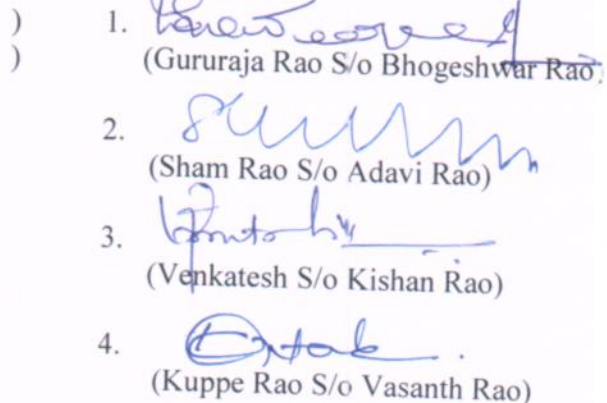 ) 1.
) (Gururaja Rao S/o Bhogeshwar Rao)
2.
(Sham Rao S/o Adavi Rao)
3.
(Venkatesh S/o Kishan Rao)
4.
(Kuppe Rao S/o Vasanth Rao)